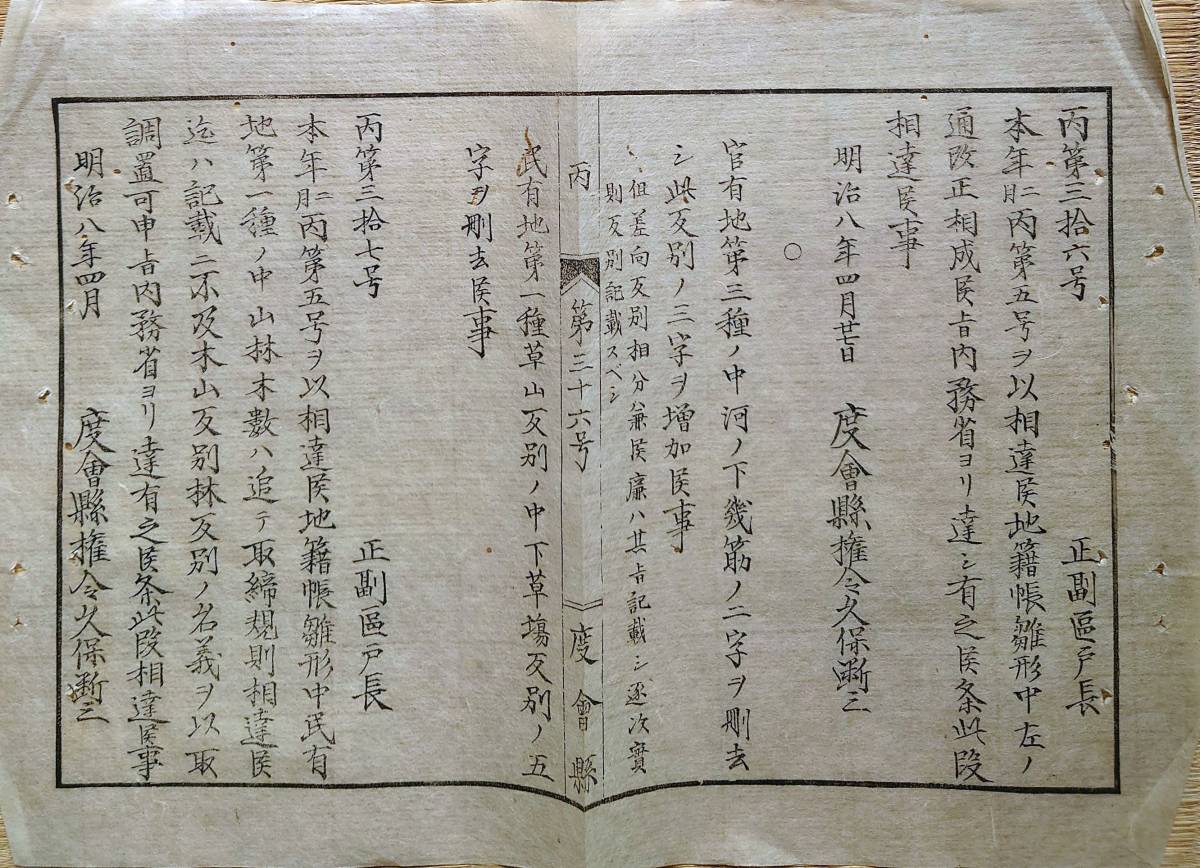 丙第三拾六号
正副區戸長
本年二月丙第五号ヲ以相達候地籍帳雛形中左ノ
通改正相成候旨内務省ヨリ達シ有之候条此段
相達候事
明治八年四月廿七日
度會縣権令久保断三
○
官有地第三種ノ中河ノ下幾筋ノ二字ヲ刪去
シ此反別ノ三字ヲ増加候事
但差向反別相分ハ兼候廉ハ其旨記載シ逐次實
則反別記載スベシ
丙 第三十六号 度會縣
民有地第一種草山反別ノ中下草場反別ノ五
字ヲ刪去候事
丙第三拾七号
正副區戸長
本年二月丙第五号ヲ以相達候地籍帳雛形中民有
地第一種ノ中山林木數ハ追テ取締規則相達候
迄ハ記載ニ不及木山反別林反別ノ名義ヲ以取
調置可申旨内務省ヨリ達有之候条此段相達候事
明治八年四月
度會縣権令久保断三